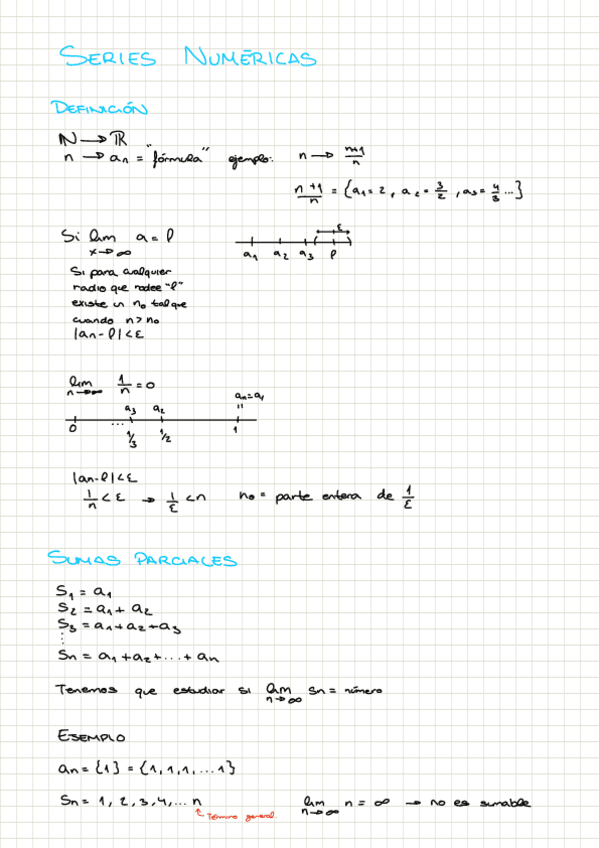 SERIES NUMÉRICAS
DEFINICIÓN
ℕ → ℝ
n → an = "fórmula" ejemplo: n → n+1/n
n+1/n = {a1=2, a2=3/2, a3=4/3...}
Si lim x→∞ a = l
ε
a1 a2 a3 l
Si para cualquier
radio que rodee "l"
existe un n0 tal que
cuando n > n0
|an-l|<ε
lim n→∞ 1/n = 0
an=a1
a3 a2 "
0 ... 1/3 1/2 1
|an-l|<ε
1/n < ε → 1/ε < n n0 = parte entera de 1/ε
SUMAS PARCIALES
S1 = a1
S2 = a1 + a2
S3 = a1+a2+a3
⋮
Sn = a1+a2+...+an
Tenemos que estudiar si lim n→∞ Sn = número
EJEMPLO
an = {1} = {1,1,1,...1}
Sn = 1, 2, 3, 4, ... n lim n→∞ n = ∞ → no es sumable
↑ Término general.